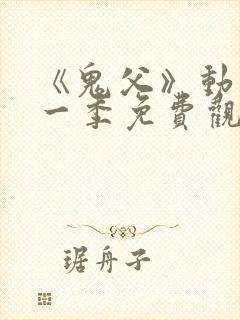 《鬼父》動
一季免費觀
琚舟子